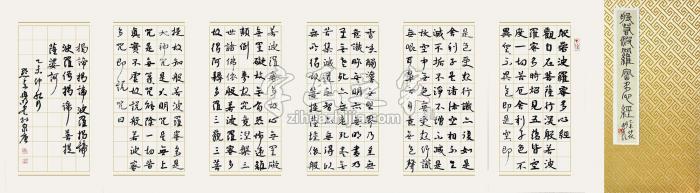 般若波羅蜜多心經
般若波羅蜜多心經
觀自在菩薩行深般若波
羅蜜多時照見五蘊皆空
度一切苦厄舍利子色不
異空空不異色色即是空空即
是色受想行識亦復如是
舍利子是諸法空相不生
不滅不垢不淨不增不減是
故空中無色無受想行識
無眼耳鼻舌身意無色聲
香味觸法無眼界乃至無
意識界無無明亦無無明盡乃
至無老死亦無老死盡無
苦集滅道無智亦無得以
無所得故菩提薩埵依般
若波羅蜜多故心無罣礙
無罣礙故無有恐怖遠離
顛倒夢想究竟涅槃三
世諸佛依般若波羅蜜多
故得阿耨多羅三藐三菩
提故知般若波羅蜜多是
大神咒是大明咒是無上
咒是無等等咒能除一切苦
真實不虛故說般若波羅蜜
多咒即說咒曰
揭諦揭諦 波羅揭諦
波羅僧揭諦 菩提
薩婆訶
乙未仲秋月